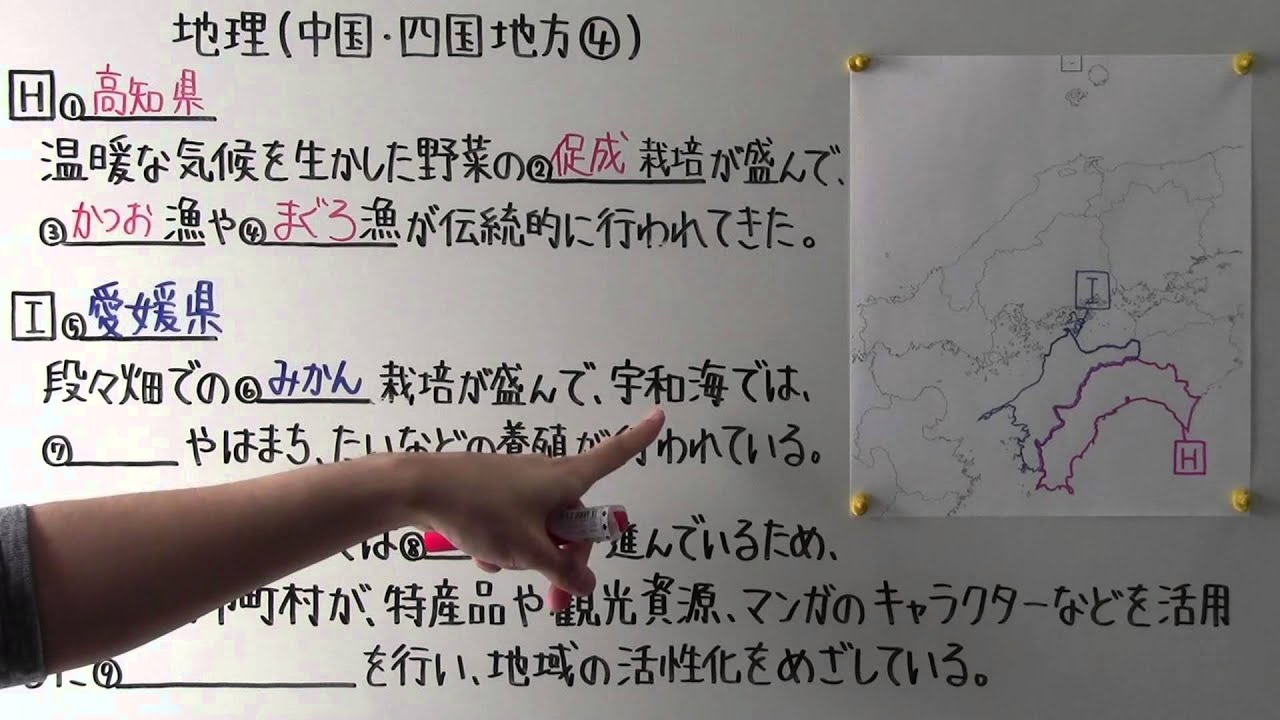 地理(中国・四国地方④)
H ①高知県
温暖な気候を生かした野菜の②促成栽培が盛んで、
③かつお漁や④まぐろ漁が伝統的に行われてきた。
I ⑤愛媛県
段々畑での⑥みかん栽培が盛んで、宇和海では、
⑦ やはまち、たいなどの養殖が行われている。
では⑧ 進んでいるため、
市町村が、特産品や観光資源、マンガのキャラクターなどを活用
⑨ を行い、地域の活性化をめざしている。
I
H